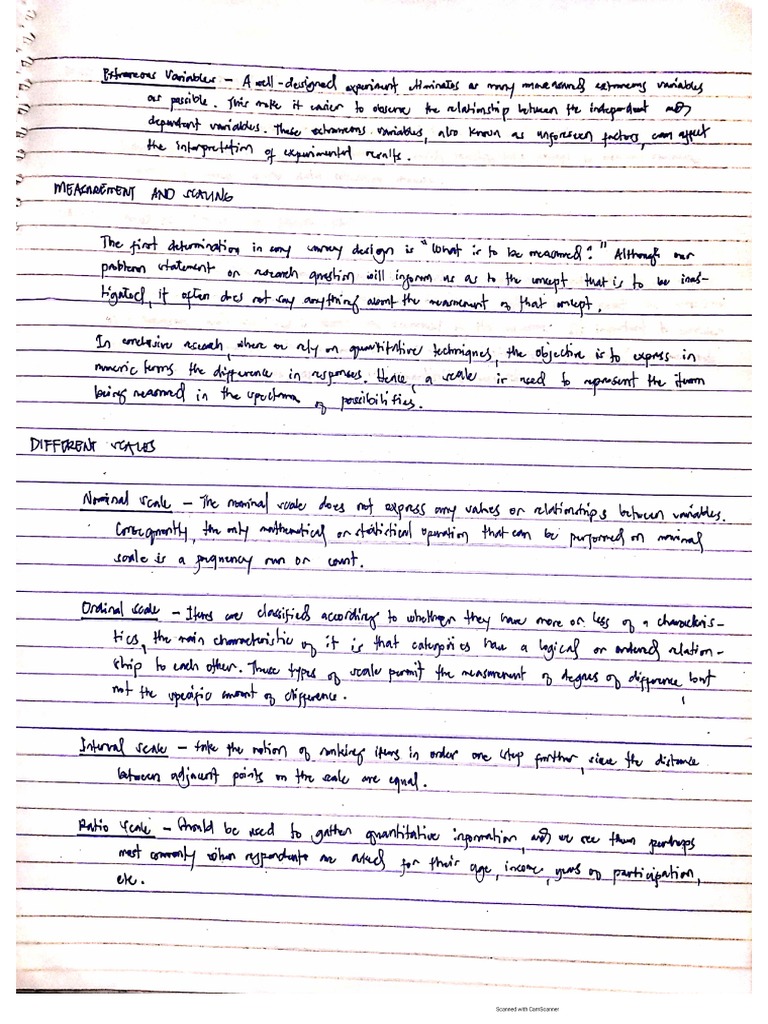 Extraneous Variables – A well-designed experiment eliminates as many unmeasured extraneous variables
as possible. This make it easier to observe the relationship between the independent and
dependent variables. These extraneous variables, also known as unforeseen factors, can affect
the interpretation of experimental results.
MEASUREMENT AND SCALING
The first determination in any survey design is "What is to be measured?" Although our
problem statement or research question will inform us as to the concept that is to be inves-
tigated, it often does not say anything about the measurement of that concept.
In conclusive research, where we rely on quantitative techniques, the objective is to express in
numeric terms the difference in responses. Hence, a scale is used to represent the item
being measured in the spectrum of possibilities.
DIFFERENT SCALES
Nominal scale – The nominal scale does not express any values or relationships between variables.
Consequently, the only mathematical or statistical operation that can be performed on nominal
scale is a frequency run or count.
Ordinal scale – Items are classified according to whether they have more or less of a characteris-
tics, the main characteristic of it is that categories have a logical or ordered relation-
ship to each other. These types of scale permit the measurement of degrees of difference, but
not the specific amount of difference.
Interval scale – take the notion of ranking items in order one step further, since the distance
between adjacent points on the scale are equal.
Ratio scale – should be used to gather quantitative information, and we see them perhaps
most commonly when respondents are asked for their age, income, years of participation,
etc.
Scanned with CamScanner